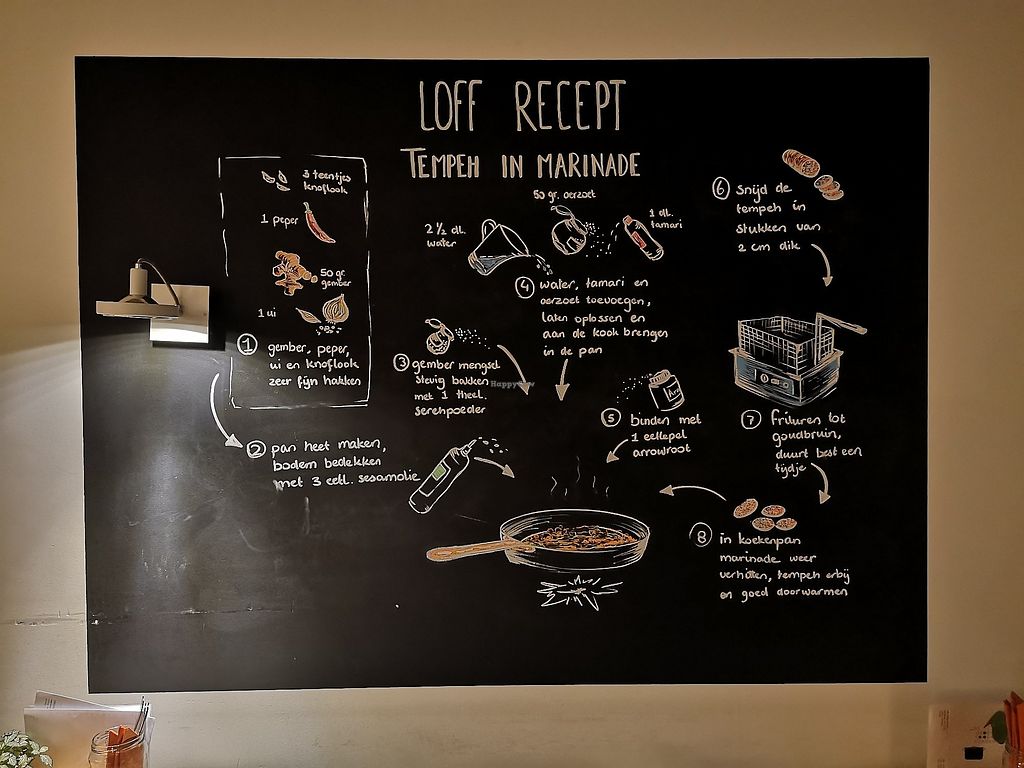 LOFF RECEPT
TEMPEH IN MARINADE
3 teentjes
knoflook
1 peper
50 gr.
gember
1 ui
1 gember, peper,
ui en knoflook
zeer fijn hakken
2 pan heet maken,
bodem bedekken
met 3 eetl. sesamolie
3 gember mengsel
stevig bakken
met 1 theel.
serehpoeder
2 1/2 dl.
water
50 gr. oerzoet
1 dl.
tamari
4 water, tamari en
oerzoet toevoegen,
laten oplossen en
aan de kook brengen
in de pan
5 binden met
1 eetlepel
arrowroot
6 Snijd de
tempeh in
stukken van
2 cm dik
7 Frituren tot
goudbruin,
duurt best een
tijdje
8 in koekenpan
marinade weer
verhitten, tempeh erbij
en goed doorwarmen
HappyCow